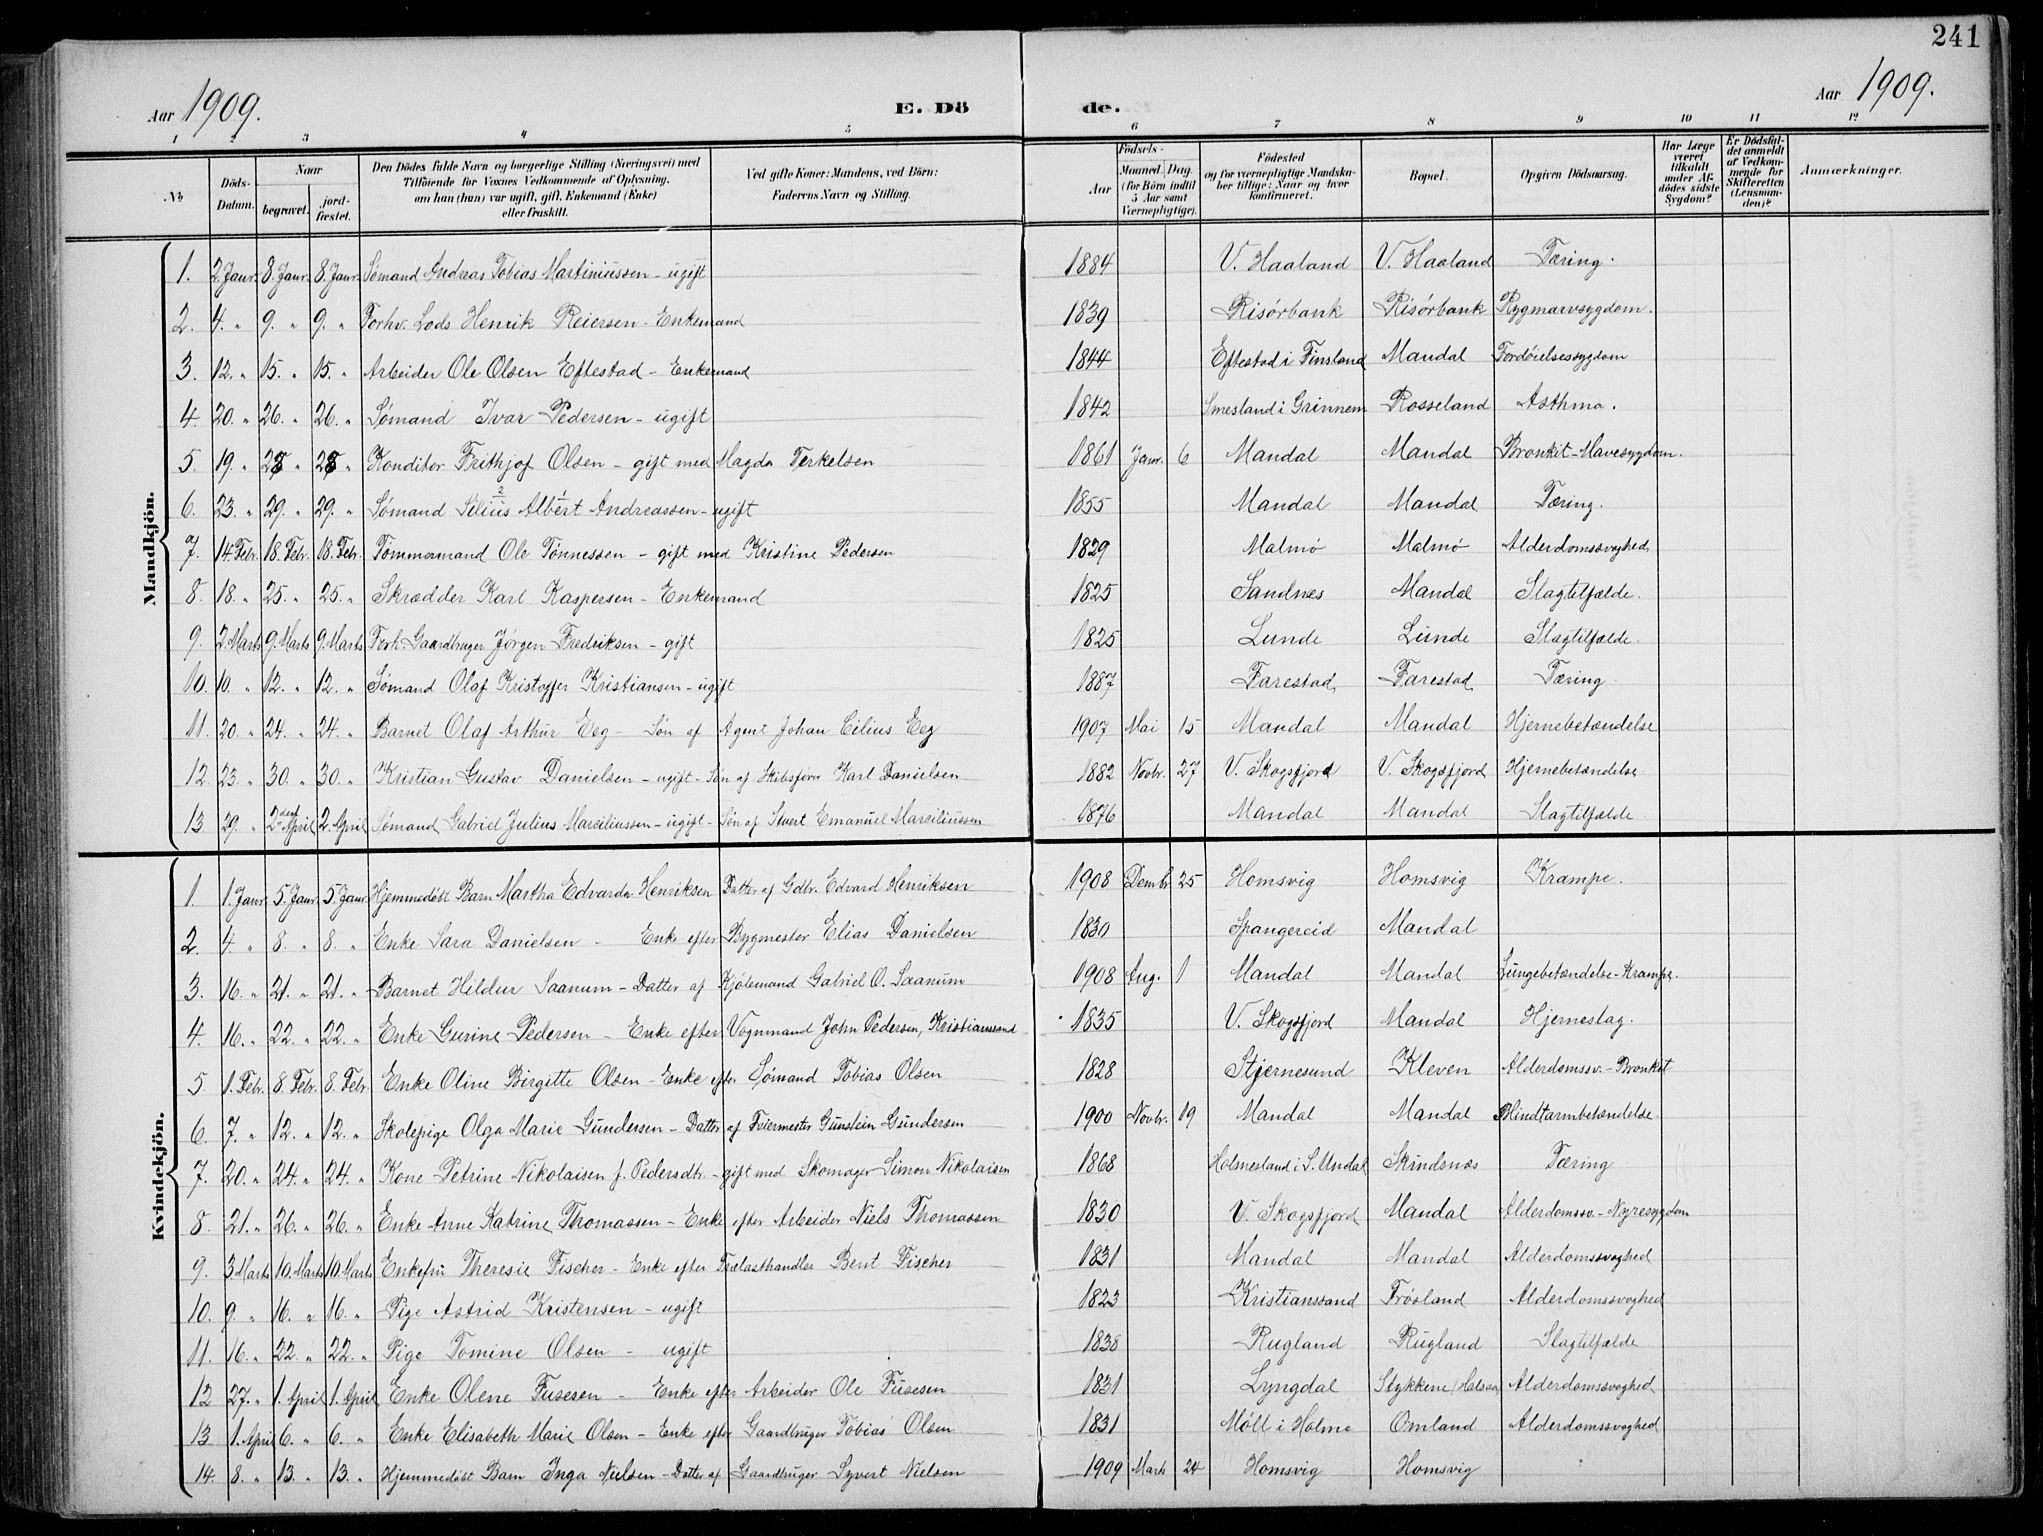 241
Aar 1909. E. Dö de. Aar 1909.
1 2 3 4 5 6 7 8 9 10 11 12
No. Döds-Datum. Naar begravet. jord-fæstet. Den Dödes fulde Navn og borgerlige Stilling (Næringsvei) med Tilföiende for Voxnes Vedkommende af Oplysning, om han (hun) var ugift, gift, Enkemand (Enke) eller fraskilt. Ved gifte Koner: Mandens, ved Börn: Faderens Navn og Stilling. Födsels- Aar Maaned. Dag. (for Börn indtil 5 Aar samt Værnepligtige). Födested og for værnepligtige Mandskaber tillige: Naar og hvor konfirmeret. Bopæl. Opgiven Dödsaarsag. Har Læge været tilkaldt under Afdödes sidste Sygdom? Er Dödsfaldet anmeldt af Vedkommende for Skifteretten (Lensmanden)? Anmærkninger.
Mandkjön.
1. 2. Janr. 8. Janr. 8. Janr. Sømand Andreas Tobias Martiniussen - ugift 1884 V. Haaland V. Haaland Tæring.
2. 4. " 9. " 9. " Forhv. Lods Henrik Reiersen - Enkemand 1839 Risørbank Risørbank Rygmarvsygdom.
3. 12. " 15. " 15. " Arbeider Ole Olsen Eftestad - Enkemand 1844 Eftestad i Finsland Mandal Fordøielsessygdom
4. 20. " 26. " 26. " Sømand Ivar Pedersen - ugift 1842 Smesland i Grinnem Rosseland Asthma.
5. 19. " 25 " 25 " Konditor Frithjof Olsen - gift med Magda Terkelsen 1861 Janr. 6 Mandal Mandal Bronkit-Mavesygdom.
6. 23. " 29. " 29. " Sømand Silius Albert Andreassen - ugift 1855 Mandal Mandal Tæring.
7. 14. Febr. 18. Febr. 18. Febr. Tømmermand Ole Tønnessen - gift med Kristine Pedersen 1829 Malmø Malmø Alderdomssvaghed
8. 18. " 25. " 25. " Skrædder Karl Kaspersen - Enkemand 1825 Sandnes Mandal Slagtilfælde.
9. 2. Marts 9. Marts 9. Marts Forh. Gaardbruger Jørgen Fredriksen - gift 1825 Lunde Lunde Slagtilfælde.
10. 10. " 12. " 12. " Sømand Olaf Kristoffer Kristiansen - ugift 1887 Farestad Farestad Tæring
11. 20. " 24. " 24. " Barnet Olaf Arthur Eeg - Søn af Agent Johan Cilius Eeg 1907 Mai 15 Mandal Mandal Hjernebetændelse
12 23. " 30. " 30. " Kristian Gustav Danielsen - ugift - Søn af Skibsfører Karl Danielsen 1882 Novbr. 27 V. Skogsfjord V. Skogsfjord Hjernebetændelse.
13 29. " 2den April 2. April Sømand Gabriel Julius Marciliussen - ugift - Søn af Sivert Emanuel Marciliussen 1876 Mandal Mandal Slagtilfælde
Kvindekjön.
1 1. Janr. 5. Janr. 5. Janr. Hjemmedøbt Barn Martha Edvarda Henriksen Datter af Gdbr. Edvard Henriksen 1908 Dembr 25 Homsvig Homsvig Krampe.
2. 4. " 8. " 8. " Enke Sara Danielsen - Enke efter Bygmester Elias Danielsen 1830 Spangereid Mandal
3. 16. " 21. " 21. " Barnet Hildur Saanum - Datter af Kjølemand Gabriel O. Saanum 1908 Aug. 1 Mandal Mandal Lungebetændelse-Krampe.
4. 16. " 22. " 22. " Enke Gurine Pedersen - Enke efter Vognmand John Pedersen, Kristianssand 1835 V. Skogsfjord Mandal Hjerneslag.
5 1. Febr. 8. Febr. 8. Febr. Enke Oline Birgitte Olsen - Enke efter Sømand Tobias Olsen 1828 Stjernesund Kleven Alderdomssv.-Bronkit
6. 7. " 12. " 12. " Skolepige Olga Marie Gundersen - Datter af Feiermester Gunstein Gundersen 1900 Novbr. 19 Mandal Mandal Blindtarmbetændelse.
7. 20. " 24. " 24. " Kone Petrine Nikolaisen f. Pedersdtr. - gift med Skomager Simon Nikolaisen 1868 Holmesland i S. Undal Skindsnæs Tæring
8 21. " 26. " 26. " Enke Anne Katrine Thomassen - Enke efter Arbeider Niels Thomassen 1830 V. Skogsfjord Mandal Alderdomssv.-Nyresygdom
9. 3. Marts 10. Marts 10. Marts Enkefru Theresie Fischer - Enke efter Trælasthandler Bent Fischer 1831 Mandal Mandal Alderdomssvaghed
10. 9. " 16. " 16. " Pige Astrid Kristensen - ugift 1823 Kristianssand Frøsland Alderdomssvaghed
11. 16. " 22. " 22. " Pige Tomine Olsen - ugift 1838 Rugland Rugland Slagtilfælde
12 27. " 1. April 1. April Enke Olene Fusesen - Enke efter Arbeider Ole Fusesen 1831 Lyngdal Stykkene Alderdomssvaghed
13 1. April 6. " 6. " Enke Elisabeth Marie Olsen - Enke efter Gaardbruger Tobias Olsen 1831 Møll i Holme Omland Alderdomssvaghed
14. 8. " 13. " 13. " Hjemmedøbt Barn Inga Nielsen - Datter af Gaardbruger Syvert Nielsen 1909 Marts 24 Homsvig Homsvig